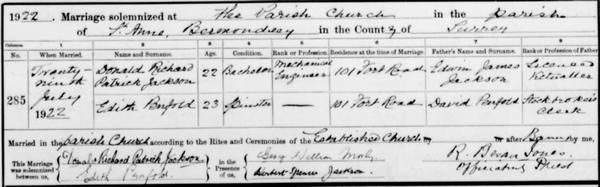 1922. Marriage solemnized at The Parish Church in the Parish
of St. Anne, Bermondsey in the County of Surrey
Columns:— 1 2 3 4 5 6 7 8
No. When Married. Name and Surname. Age. Condition. Rank or Profession. Residence at the time of Marriage. Father's Name and Surname. Rank or Profession of Father
285 Twenty ninth July 1922
Donald Richard Patrick Jackson 22 Bachelor Mechanical Engineer 101 Fort Road Edwin James Jackson Licensed Victualler
Edith Penfold 23 Spinster — 101 Fort Road David Penfold Stockbroker's Clerk
Married in the Parish Church according to the Rites and Ceremonies of the Established Church after Banns by me,
This Marriage was solemnized between us, Donald Richard Patrick Jackson Edith Penfold in the Presence of us, George William Herbert Spencer Jackson R. Bevan Jones Officiating Priest